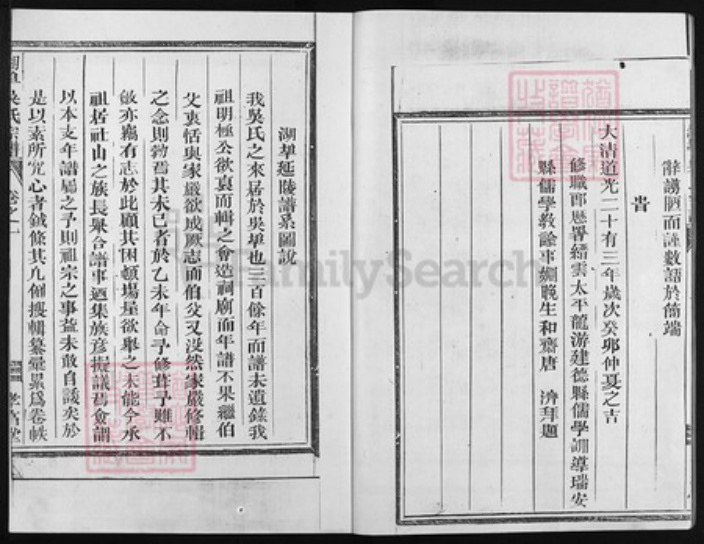 辭謭陋而謹數語於簡端
旹
大清道光二十有三年歲次癸卯仲夏之吉
修職郎歷署縉雲太平龍游建德縣儒學訓導瑞安
縣儒學教諭事姻晚生和齋唐 濟拜題
湖墺延陵譜系圖說
我吳氏之來居於吳墺也三百餘年而譜未遺錄我
祖明極公欲裒而輯之會造祠廟而年譜不果繼伯
父衷恬與家嚴欲成厥志而伯父又沒然家嚴修輯
之念則勃焉其未已者於乙未年命予修葺予雖不
敏亦竊有志於此顧其困頓場屋欲舉之未能今承
祖居社山之族長舉合譜事迺集族彥提議焉僉謂
以本支年譜屬之予則祖宗之事益未敢自諼矣於
是以素所究心者鋮條其凡例搜輯纂彙累爲卷帙
吳氏宗譜 卷之一
FamilySearch